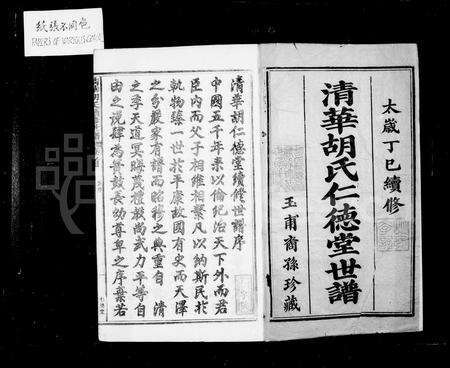 紙張不同色
PAPERS OF VARIOUS COLORS
太歲丁巳續修
清華胡氏仁德堂世譜
玉甫裔孫珍藏
清華胡仁德堂續修世譜序
中國五千年來以倫紀治天下外而君
臣內而父子相維相繫凡以納斯民於
軌物臻一世於平康故國有史而天澤
之分嚴家有譜而昭穆之典重自 清
之季天道冥晦蔑禮教尚武力平等自
由之說肆為簧鼓長幼尊卑之序棄若
仁德堂